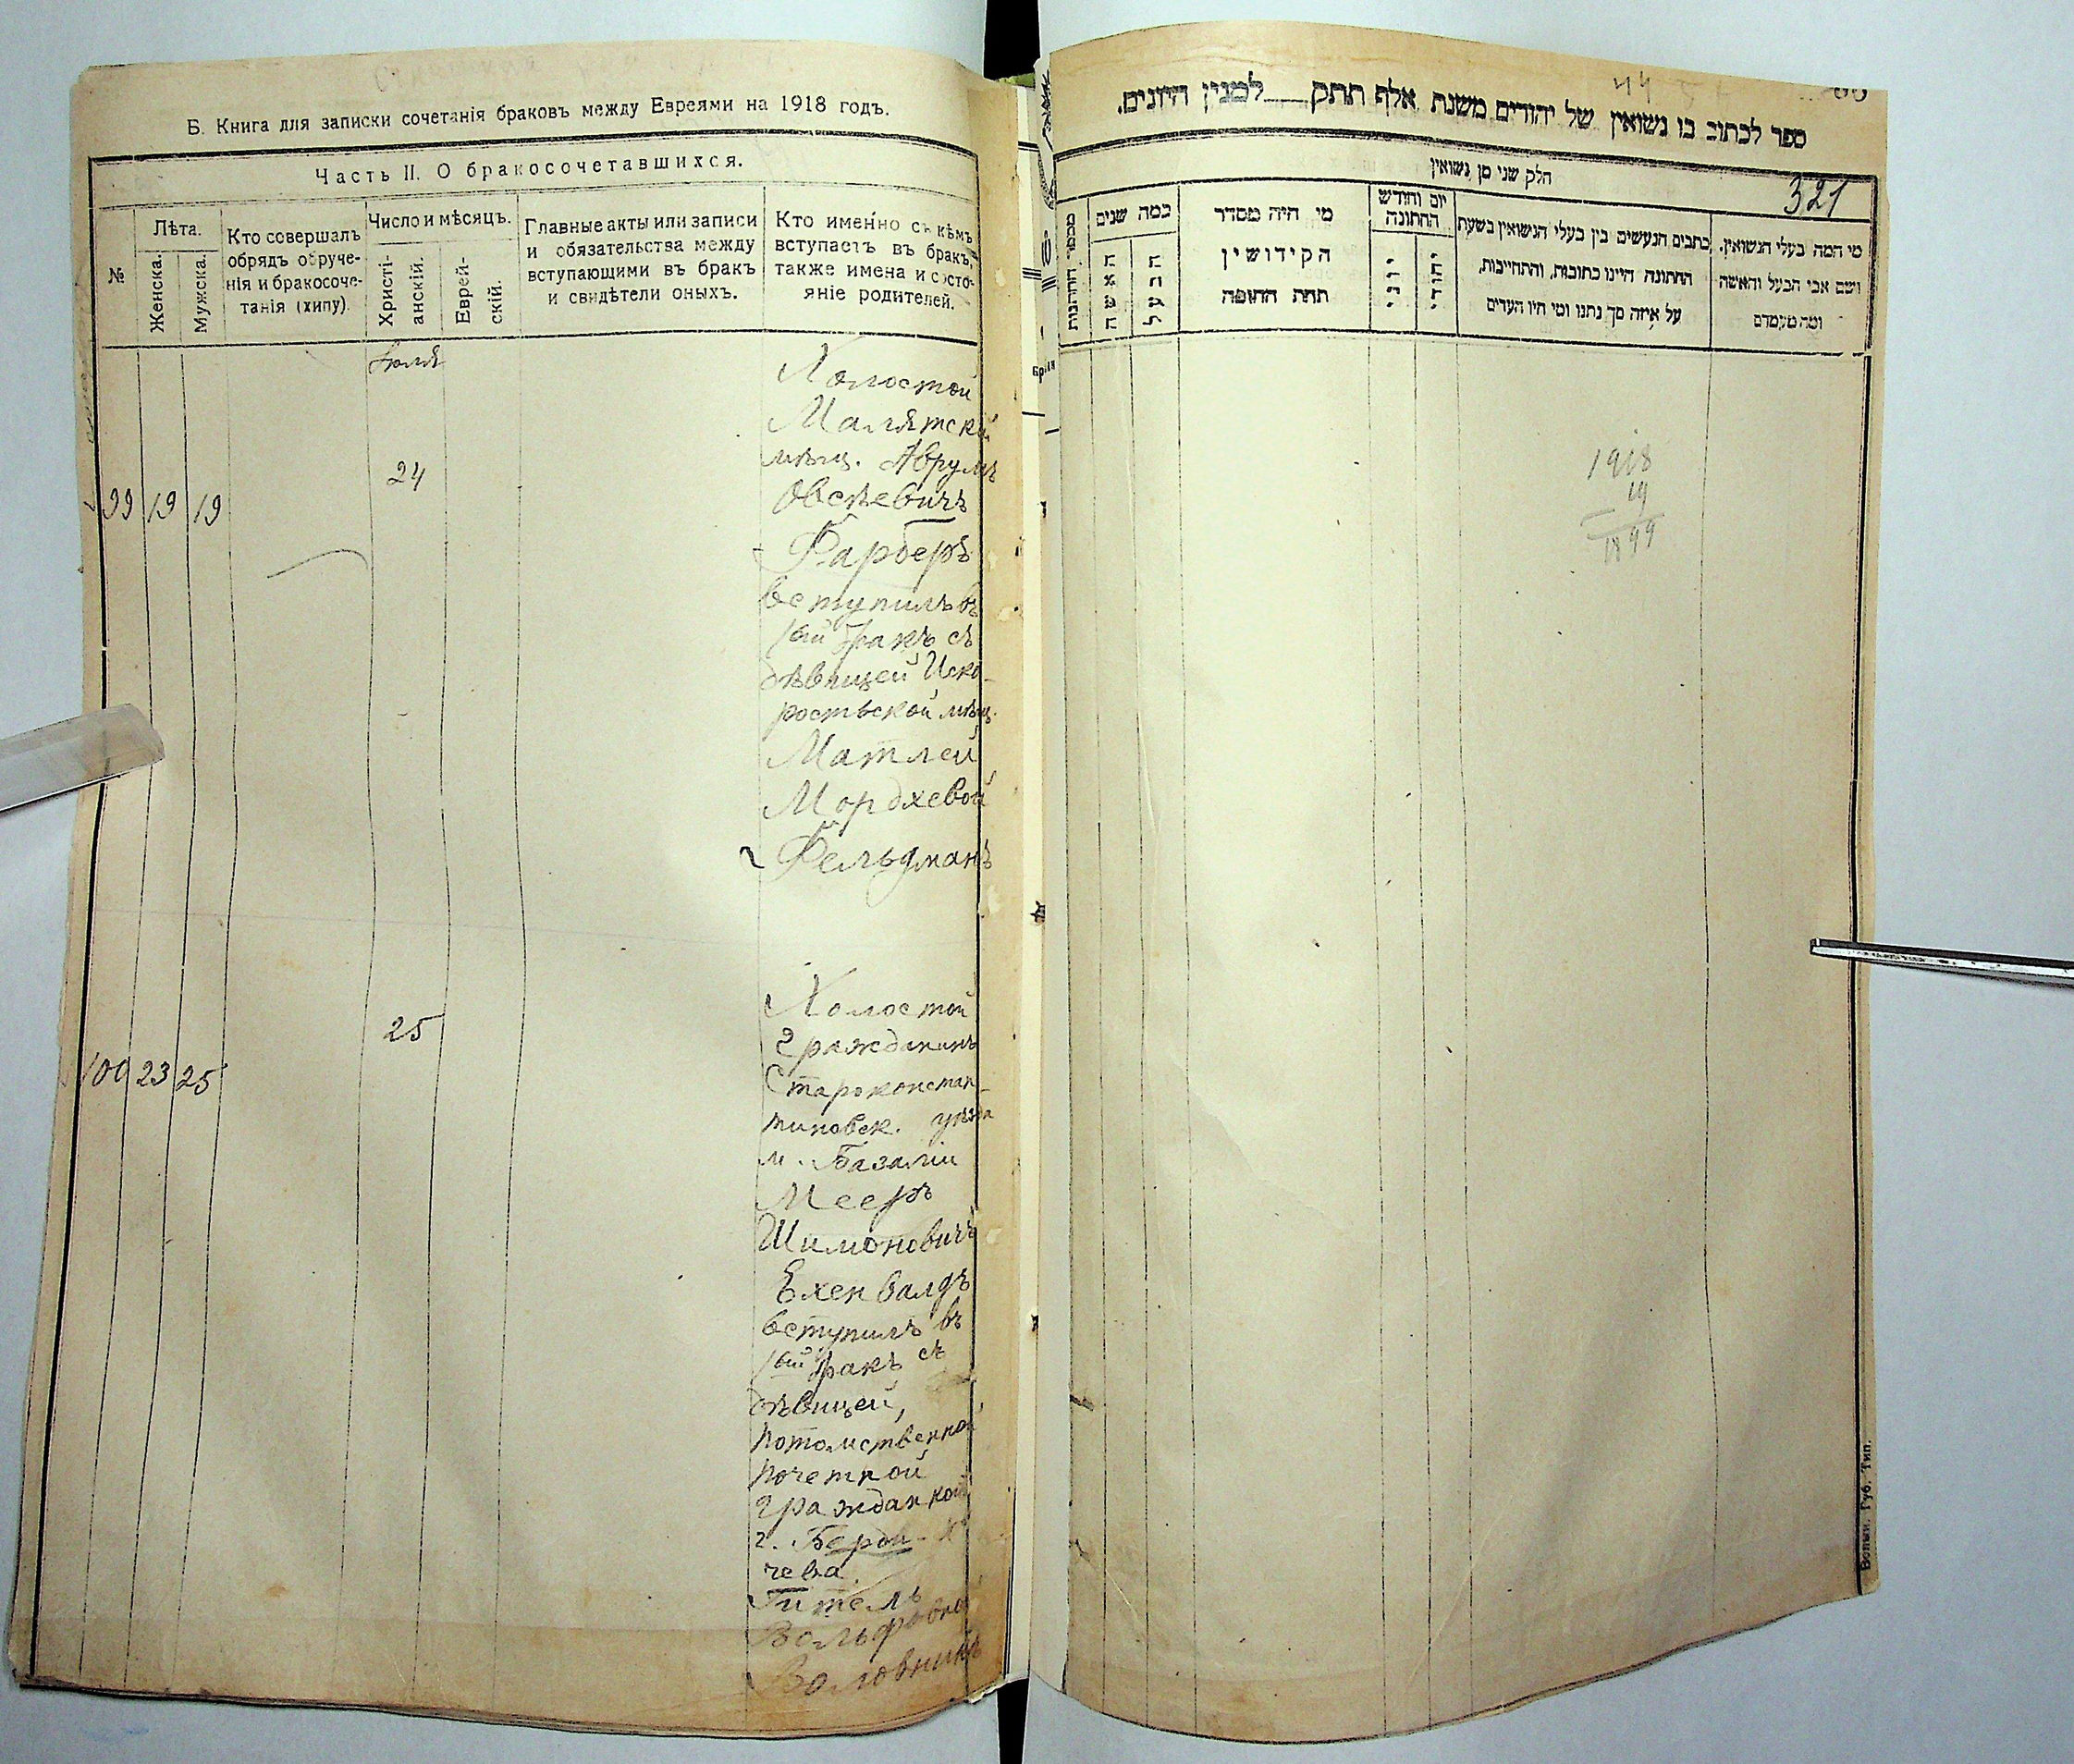 Б. Книга для записки сочетанія браковъ между Евреями на 1918 годъ.
Часть II. О бракосочетавшихся.
№
Лѣта.
Женска.
Мужска.
Кто совершалъ
обрядъ обруче-
нія и бракосоче-
танія (хипу)
Число и мѣсяцъ.
Христі-
анскій.
Еврей-
скій.
Главные акты или записи
и обязательства между
вступающими въ бракъ
и свидѣтели оныхъ.
Кто именно съ кѣмъ
вступаетъ въ бракъ,
также имена и состо-
яніе родителей.
Іюля
99 19 19
24
Холостой
Малятскій
мѣщ. Аврумъ
Овсѣевичъ
Фарберъ
вступилъ въ
1ый бракъ съ
дѣвицей Иско-
ростьской мѣщ.
Матлей
Мордхевой
Фельдманъ
100 23 25
25
Холостой
гражданинъ
Староконстан-
тиновск. уѣзда
м. Базаліи
Мееръ
Шимоновичъ
Ехенвалдъ
вступилъ въ
1ый бракъ съ
дѣвицей,
потомственной
почетной
гражданкой
г. Берди-
чева
Гитель
Вольфовной
Воловникъ
44
ספר לכתוב בו נשואין של יהודים משנת אלף תתק___למנין היונים.
חלק שני מן נשואין
321
מספר החתונות
כמה שנים
האשה
הבעל
מי היה מסדר
הקידושין
תחת החופה
יום וחודש
החתונה
יוני
יהודי
כתבים הנעשים בין בעלי הנשואין בשעת
החתונה היינו כתובות, והתחייבות,
על איזה סך נתנו ומי היו העדים
מי המה בעלי הנשואין,
ושם אבי הבעל והאשה
ומה מעמדם
1918
19
1899
Волын. Губ. Тип.